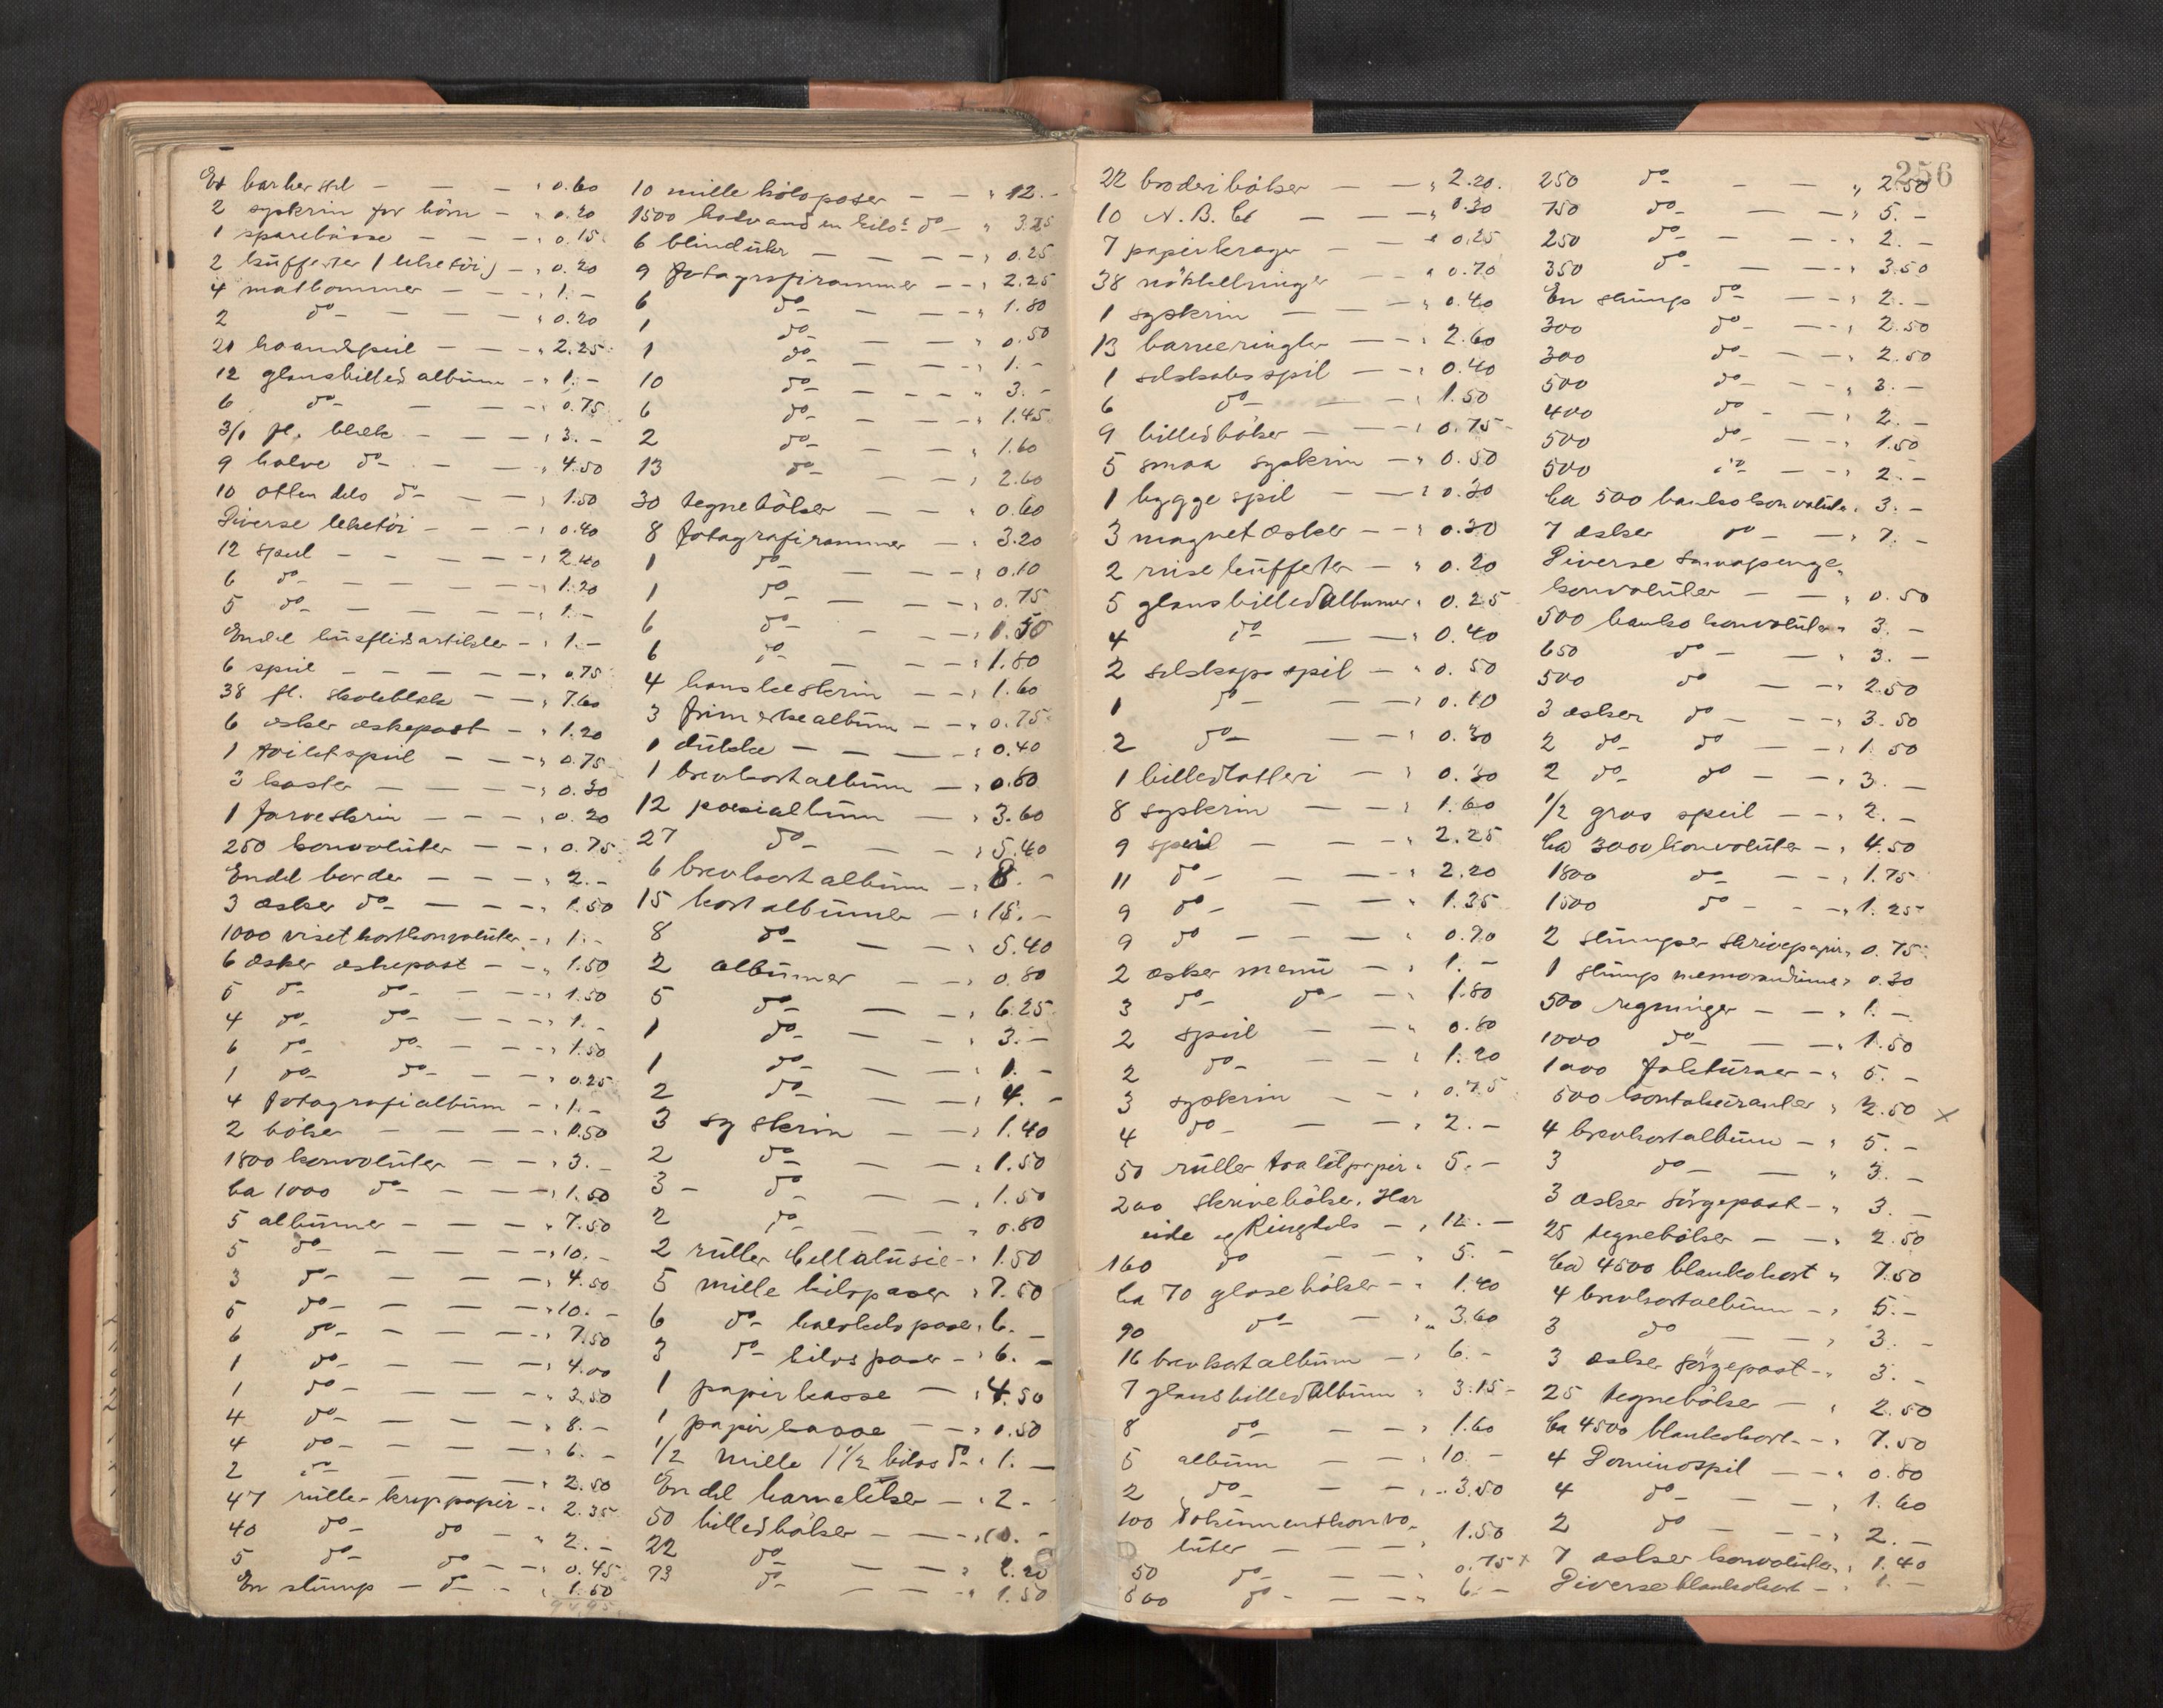 Et barber stel - - - " 0.60
2 syskrin for börn - " 0.20
1 sparebösse - - - " 0.15
2 kufferter (leketöi) - " 0.20
4 matbommer - - - " 1.-
2 do - - - " 0.20
21 haandspeil - - - " 2.25
12 glansbilled album - " 1.-
6 do - - - " 0.75
3/1 fl. blæk - - - " 3.-
9 halve do - - - " 4.50
10 otten dels do - - - " 1.50
Diverse leketöi - - - " 0.40
12 speil - - - " 2.40
6 do - - - " 1.20
5 do - - - " 1.-
Endel husflidsartikler - " 1.-
6 speil - - - " 0.75
38 fl. skoleblæk - - " 7.60
6 æsker æskepost - " 1.20
1 toiletspeil - - - " 0.75
3 koster - - - " 0.30
1 farveskrin - - - " 0.20
250 konvolüter - - " 0.75
Endel border - - - " 2.-
3 æsker do - - - " 1.50
1000 visetkortkonvolüter - " 1.-
6 æsker æskepost - - " 1.50
5 do do - - - " 1.50
4 do do - - - " 1.-
6 do do - - - " 1.50
1 do do - - - " 0.25
4 fotografialbum - " 1.-
2 böker - - - " 0.50
1800 konvolüter - - " 3.-
Ca 1000 do - - - " 1.50
5 albümer - - - " 7.50
5 do - - - " 10.-
3 do - - - " 4.50
5 do - - - " 10.-
6 do - - - " 7.50
1 do - - - " 4.00
1 do - - - " 3.50
4 do - - - " 8.-
4 do - - - " 6.-
2 do - - - " 2.50
47 ruller kreppapir - " 2.35
40 do do - " 2.-
5 do do - - " 0.45
En stump - do - - " 1.50
10 mille kiloposer - - " 12.-
1500 halvand en kilos do - " 3.25
6 blindükr - - - " 0.25
9 fotografirammer - - " 2.25
6 do - - " 1.80
1 do - - " 0.50
1 do - - " 1.-
10 do - - - " 3.-
6 do - - " 1.45
2 do - - " 1.60
13 do - - " 2.60
30 tegnebøker - - " 0.60
8 fotografirammer - " 3.20
1 do - - " 0.10
1 do - - - " 0.75
6 do - - - " 1.50
6 do - - - " 1.80
4 hanskeskrin - - " 1.60
3 frimerkealbum - - " 0.75
1 dukke - - - " 0.40
1 brevkortalbum - " 0.80
12 poesialbum - - " 3.60
27 do - - " 5.40
6 brevkortalbum - " 8.-
15 kortalbümer - " 15.-
8 do - - " 5.40
2 albümer - - " 0.80
5 do - - " 6.25
1 do - - " 3.-
1 do - - " 1.-
2 do - - " 4.-
3 syskrin - - " 1.40
2 do - - " 1.50
3 - do - - " 1.50
2 do - - " 0.80
2 ruller Cellalusie - " 1.50
5 mille kilsposer " 7.50
6 do halvkilo poser " 6.-
3 do kilos poser - " 6.-
1 papirkasse - " 4.50
1 papirkasse - - " 0.50
1/2 mille 1 1/2 kilos do - " 1.-
Endel barnebøker - " 2.-
50 billedbøker - - " 10.-
22 do - - " 2.20
73 do - - " 1.50
22 broderibøker - - " 2.20.
10 A.B.C. - - - " 0.30
7 papirkrager - - " 0.25
38 nökkelringer - " 0.70
1 syskrin - - - " 0.40
13 barneringler - - " 2.60
1 selskabsspil - - " 0.40
6 do - - " 1.50
9 billedbøker - - " 0.75
5 smaa syskrin - " 0.50
1 byggespil - - " 0.30
3 magnetæsker - - " 0.30
2 reisekufferter - " 0.20
5 glansbilledalbumer " 0.25
4 do - - " 0.40
2 selskaps spil - " 0.50
1 do - - " 0.10
2 do - - " 0.30
1 billedlotteri - " 0.30
8 syskrin - - " 1.60
9 speil - - - " 2.25
11 do - - - " 2.20
9 do - - - " 1.35
9 do - - - " 0.70
2 æsker menü - " 1.-
3 do do - " 1.80
2 speil - - " 0.80
2 do - - " 1.20
3 syskrin - - " 0.75
4 do - - " 2.-
50 ruller toaletpapir " 5.-
200 skrivebøker, Har
eide og Ringdals - " 12.-
160 do - - " 5.-
Ca 70 glosebøker - " 1.40
90 do - " 3.60
16 brevkortalbum - " 6.-
7 glansbilledalbum " 3.15-
8 do - - " 1.60
5 album - - " 10.-
2 do - - " 3.50
100 dokumentkonvo-
lüter - - - 1.50
50 do - - - 0.75 x
500 do - - - 6.-
256
250 do - - " 2.50
750 do - - " 5.-
250 do - - " 2.-
350 do - - " 3.50
En stump do - - " 2.-
300 do - - " 2.50
300 do - - " 2.50
500 do - - " 3.-
400 do - - " 2.-
500 do - - " 1.50
500 do - - " 2.-
Ca 500 banko konvolüter " 3.-
7 æsker do - - " 7.-
Diverse
konvolüter - - " 0.50
500 banko konvolüter " 3.-
650 do - - " 3.-
500 do - - " 2.50
3 æsker do - - " 3.50
2 do do - - " 1.50
2 do do - - " 3.-
1/2 gros speil - - " 2.-
Ca 3000 konvolüter - " 4.50
1800 do - - " 1.75
1500 do - - " 1.25
2 stumper skrivepapir " 0.75
1 stump memorandumer " 0.30
500 regninger - - " 1.-
1000 do - - " 1.50
1000 fakturaer - " 5.-
500 kontokuranter " 2.50 x
4 brevkortalbum - " 5.-
3 do - " 3.-
3 æsker sörgepost - " 3.-
25 tegnebøker - - " 2.50
Ca 4500 blankokort " 7.50
4 brevkortalbum - " 5.-
3 do - - " 3.-
3 æsker sörgepost - " 3.-
25 tegnebøker - " 2.50
Ca 4500 blankokort - " 7.50
4 Dominospil - - " 0.80
4 do - - " 1.60
2 do - - " 2.-
7 æsker konvolüter " 1.40
Diverse blankokort - " 1.-